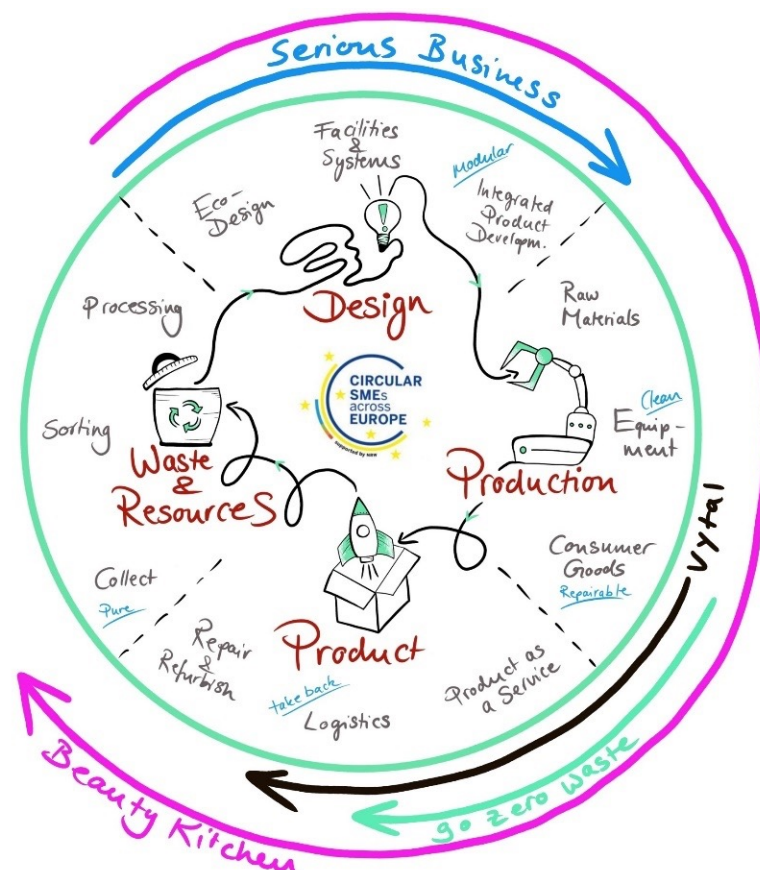 Serious Business
Facilities
&
Systems
Modular
Integrated
Product
Developm.
Eco-
Design
Design
Processing
Raw
Materials
CIRCULAR
SMEs
across
EUROPE
supported by NRW
Clean
Equip-
ment
Sorting
Waste
&
Resources
Production
Vytal
Consumer
Goods
Repairable
Collect
Pure
Repair
&
Refurbish
Product
take back
Logistics
Product as
a Service
go zero waste
Beauty Kitchen